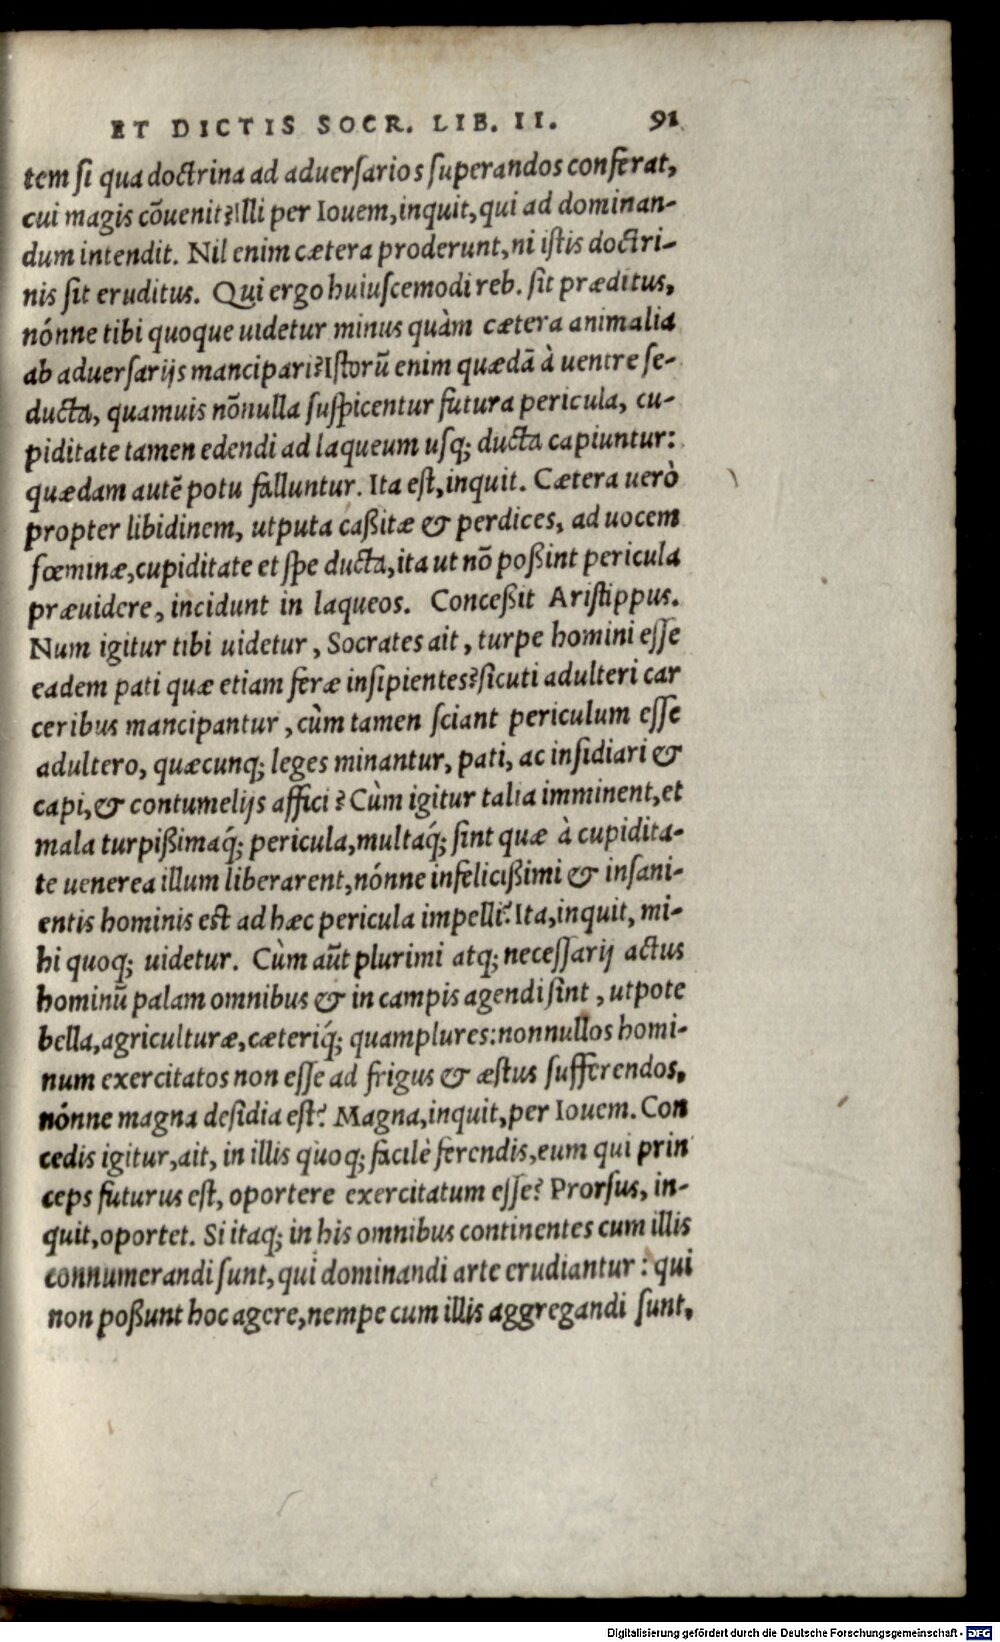 ET DICTIS SOCR. LIB. II. 91
tem ſi qua doctrina ad aduerſarios ſuperandos conferat,
cui magis cōuenit? Illi per Iouem, inquit, qui ad dominan-
dum intendit. Nil enim cætera proderunt, ni iſtis doctri-
nis ſit eruditus. Qui ergo huiuſcemodi reb. ſit præditus,
nónne tibi quoque uidetur minus quàm cætera animalia
ab aduerſarijs mancipari? Iſtorū enim quædā à uentre ſe-
ducta, quamuis nōnulla ſuſpicentur futura pericula, cu-
piditate tamen edendi ad laqueum uſq; ducta capiuntur:
quædam autē potu falluntur. Ita eſt, inquit. Cætera uerò
propter libidinem, utputa caßitæ & perdices, ad uocem
fœminæ, cupiditate et ſpe ducta, ita ut nō poßint pericula
præuidere, incidunt in laqueos. Conceßit Ariſtippus.
Num igitur tibi uidetur, Socrates ait, turpe homini eſſe
eadem pati quæ etiam feræ inſipientes? ſicuti adulteri car
ceribus mancipantur, cùm tamen ſciant periculum eſſe
adultero, quæcunq; leges minantur, pati, ac inſidiari &
capi, & contumelijs affici? Cùm igitur talia imminent, et
mala turpißimaq́; pericula, multaq́; ſint quæ à cupidita-
te uenerea illum liberarent, nónne infelicißimi & inſani-
entis hominis est ad hæc pericula impelli? Ita, inquit, mi-
hi quoq; uidetur. Cùm aūt plurimi atq; neceſſarij actus
hominū palam omnibus & in campis agendi ſint, utpote
bella, agriculturæ, cæteriq́; quamplures: nonnullos homi-
num exercitatos non eſſe ad frigus & æſtus ſufferendos,
nónne magna deſidia eſt? Magna, inquit, per Iouem. Con
cedis igitur, ait, in illis quoq; facilè ferendis, eum qui prin
ceps futurus eſt, oportere exercitatum eſſe? Prorſus, in-
quit, oportet. Si itaq; in his omnibus continentes cum illis
connumerandi ſunt, qui dominandi arte erudiantur: qui
non poßunt hoc agere, nempe cum illis aggregandi ſunt,
Digitalisierung gefördert durch die Deutsche Forschungsgemeinschaft - DFG